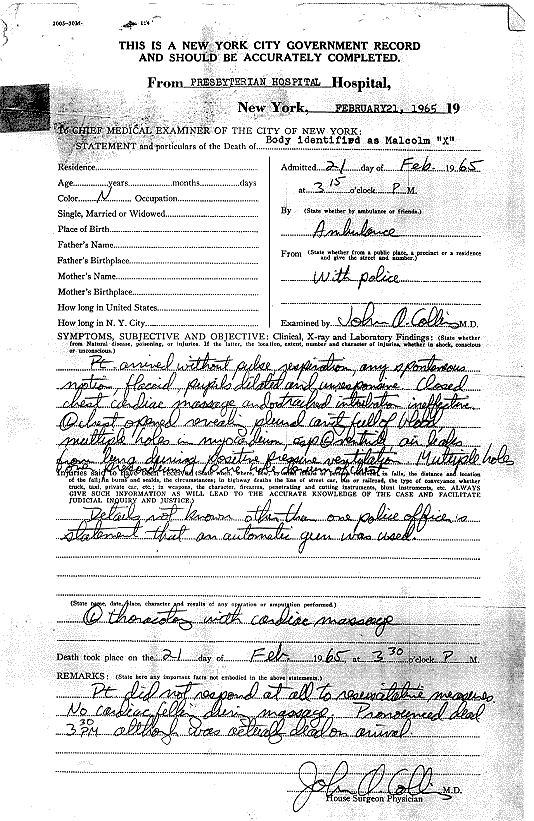 2005-30M-
114
THIS IS A NEW YORK CITY GOVERNMENT RECORD
AND SHOULD BE ACCURATELY COMPLETED.
From PRESBYTERIAN HOSPITAL Hospital,
New York, FEBRUARY21, 1965 19
To CHIEF MEDICAL EXAMINER OF THE CITY OF NEW YORK:
STATEMENT and particulars of the Death of Body identified as Malcolm "X"
Residence
Age years months days
Color N Occupation
Single, Married or Widowed
Place of Birth
Father's Name
Father's Birthplace
Mother's Name
Mother's Birthplace
How long in United States
How long in N. Y. City
Admitted 21 day of Feb. 1965
at 3 15 o'clock P M.
By (State whether by ambulance or friends.)
Ambulance
From (State whether from a public place, a precinct or a residence
and give the street and number.)
With police
Examined by John A. Collins M.D.
SYMPTOMS, SUBJECTIVE AND OBJECTIVE: Clinical, X-ray and Laboratory Findings: (State whether
from Natural disease, poisoning, or injuries. If the latter, the location, extent, number and character of injuries, whether in shock, conscious
or unconscious.)
Pt arrived without pulse respiration any spontaneous
motion flaccid, pupils dilated and unresponsive. Closed
chest cardiac massage and intubation ineffective.
(L) chest opened reveals pleural cavity full of blood,
multiple holes in myocardium, esp (L) ventricle, air leaks
from lung during positive pressure ventilation. Multiple holes
Injuries said to have been received
of the fall; in burns and scalds, the circumstances; in highway deaths the line of street car, bus or railroad, the type of conveyance whether
truck, taxi, private car, etc.; in weapons, the character, firearms, penetrating and cutting instruments, blunt instruments, etc. ALWAYS
GIVE SUCH INFORMATION AS WILL LEAD TO THE ACCURATE KNOWLEDGE OF THE CASE AND FACILITATE
JUDICIAL INQUIRY AND JUSTICE.)
Details not known other than one police officer's
statement that an automatic gun was used.
(State name, date, place, character and results of any operation or amputation performed.)
(L) thoracotomy with cardiac massage
Death took place on the 21 day of Feb. 1965 at 3 30 o'clock P M.
REMARKS: (State here any important facts not embodied in the above statements.)
Pt. did not respond at all to resuscitative measures
No cardiac filling during massage. Pronounced dead
3 30 PM although was actually dead on arrival.
John A. Collins M.D.
House Surgeon Physician